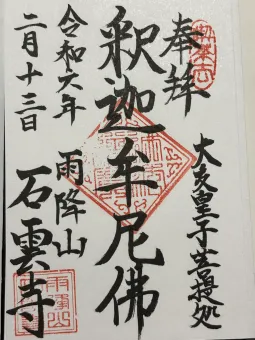 奉拝
大友皇子菩提処
釈迦牟尼佛
雨降山
石雲寺
令和六年
二月十三日